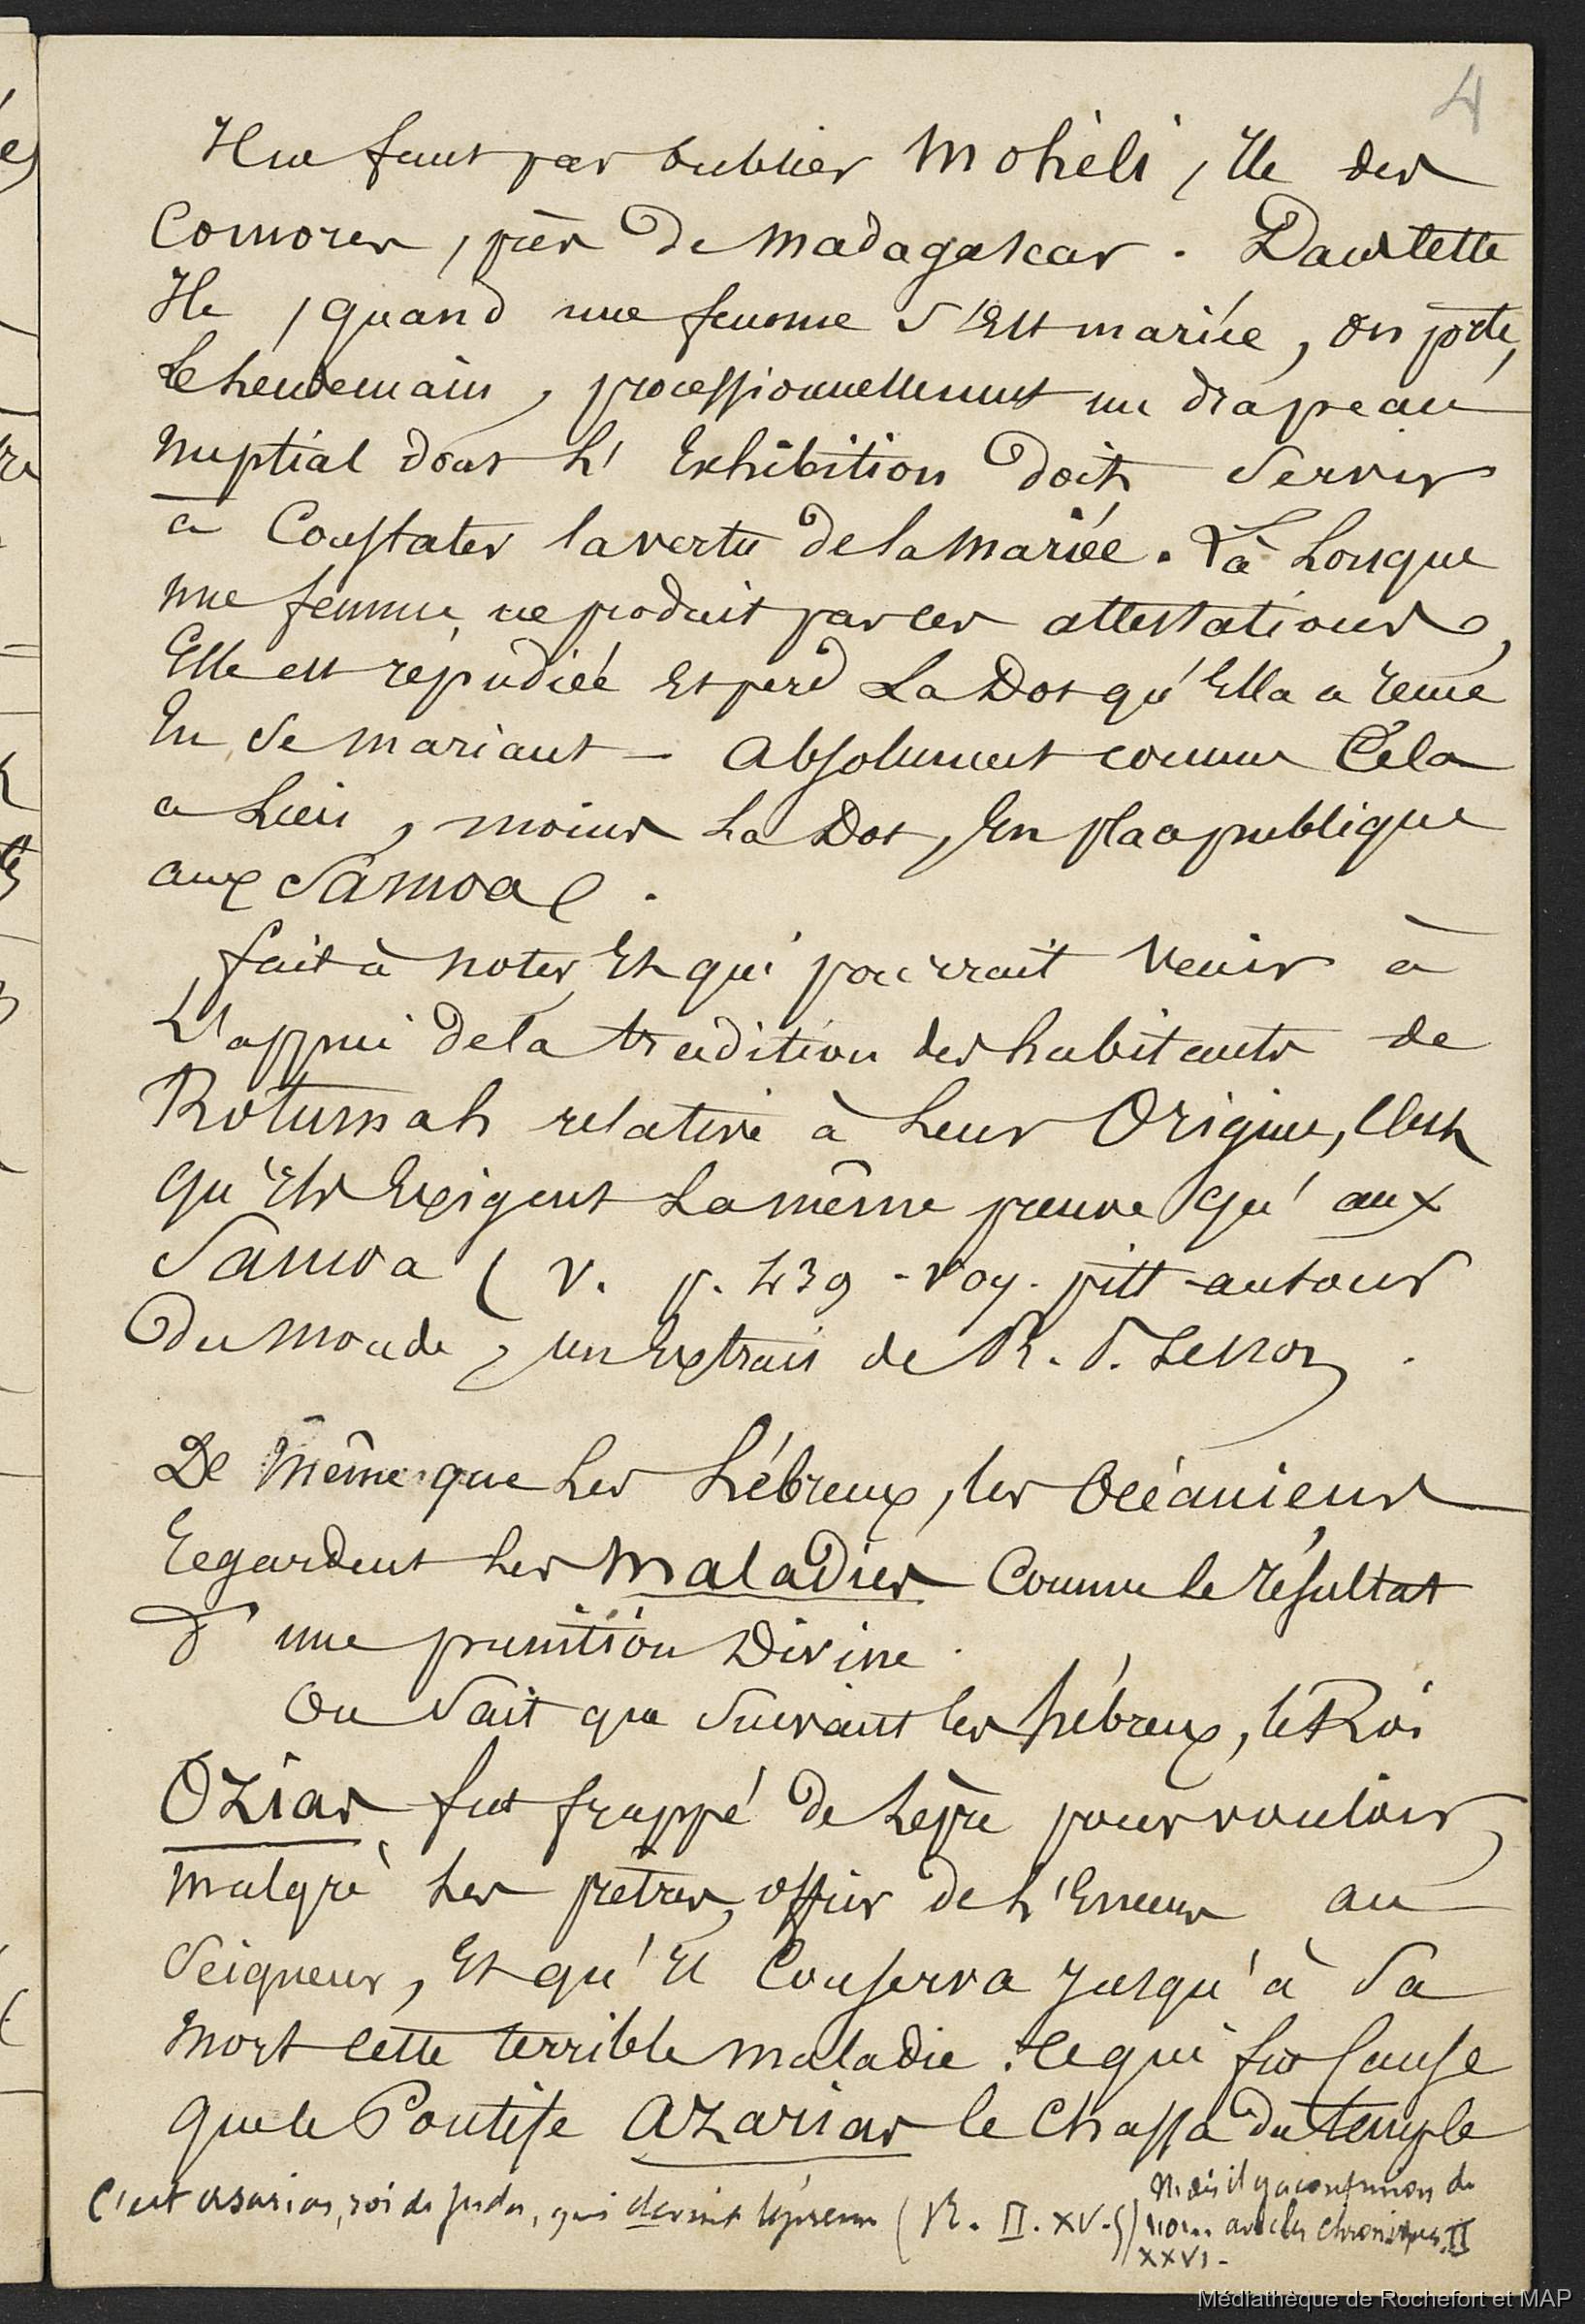 4
Il ne faut pas oublier Mohéli, Ile des
Comores, près de Madagascar. Dans cette
Ile, quand une femme s'est mariée, on porte,
le lendemain, processionnellement un drapeau
nuptial dont l'Exhibition doit servir
à Constater la vertu de la Mariée. Là Lorsque
une femme ne produit pas ces attestations,
Elle est repudiée et perd La Dot qu'Elle a reçue
En se mariant — absolument comme Cela
a Lieu, moins La Dot, En place publique
aux Samoa.
fait à noter, Et qui pourrait venir à
L'appui de la tradition des habitants de
Rotumah relative à Leur Origine, C'est
qu'Ils Exigent La même preuve qu'aux
Samoa (V. p. 439 - Voy. pitt - autour
Du Monde, un Extrait de R. P. Lesson.
De Même que Les Hébreux, les Océaniens
Regardent Les Maladies Comme le résultat
d'une punition Divine.
On Sait que Suivant les hébreux, le Roi
Ozias fut frappé de Lèpre pour vouloir,
malgré les prêtres, offrir de l'Encens au
Seigneur, Et qu'Il Conserva jusqu'à Sa
Mort Cette terrible maladie : Ce qui fut Cause
que le Pontife Azarias le Chassa du temple
C'est Asarias, roi de Juda, qui devint lépreux (R. II. XV-5)
Mais il y a confusion de
nom avec les Chroniques II
XXVI -
Médiathèque de Rochefort et MAP